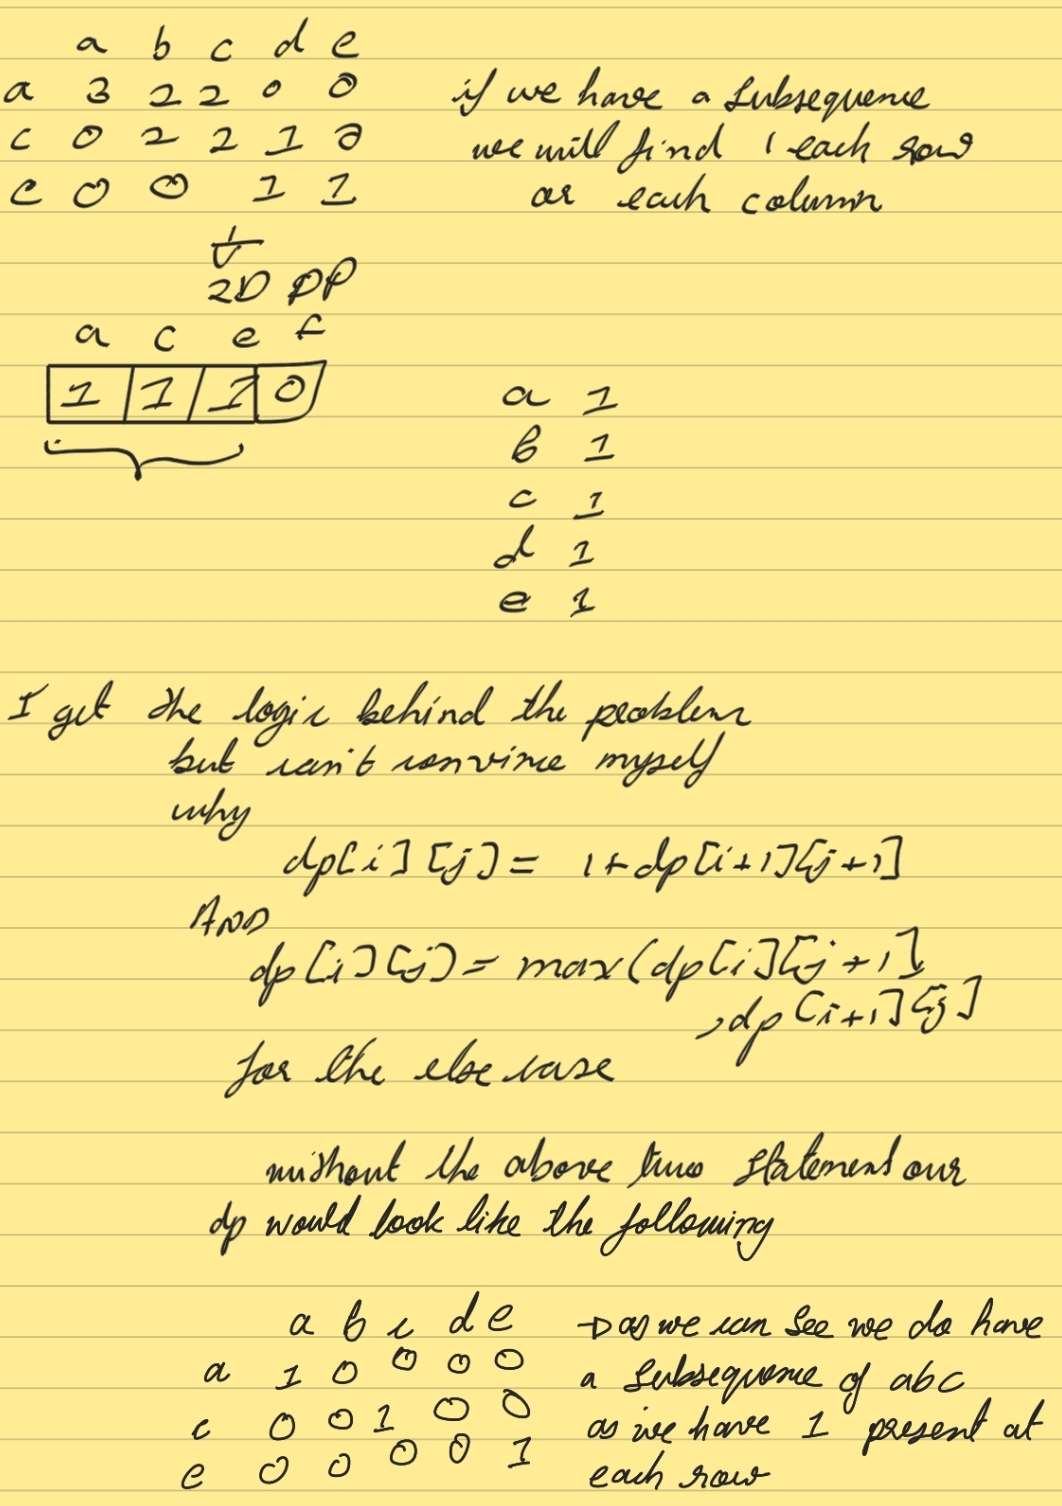 a b c d e
a 3 2 2 0 0
c 0 2 2 1 0
e 0 0 1 1
if we have a subsequence
we will find 1 each row
or each column
2D DP
a c e f
1 1 1 0
a 1
b 1
c 1
d 1
e 1
I get the logic behind the problem
but can't convince myself
why
dp[i][j] = 1+dp[i+1][j+1]
AND
dp[i][j] = max(dp[i][j+1]
,dp[i+1][j]
for the else case
without the above two statement our
dp would look like the following
a b c d e
a 1 0 0 0 0
c 0 0 1 0 0
e 0 0 0 0 1
→ as we can see we do have
a subsequence of abc
as we have 1 present at
each row